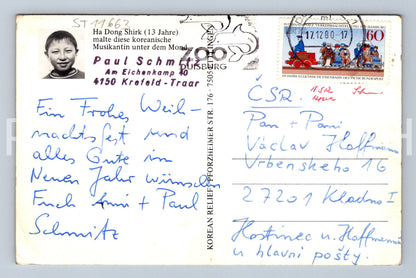 ST 11663
Ha Dong Shirk (13 Jahre)
malte diese koreanische
Musikantin unter dem Mond
Paul Schm
Am Eichenkamp 40
4150 Krefeld-Traar
Ein Frohes Weih-
nachtsfest und
alles Gute im
Neuen Jahr wünschen
Euch Anni + Paul
Schmitz
KOREAN RELIEF, PFORZHEIMER STR. 176
ZOO
DUISBURG
17.12.80-17
60
ČSR.
Pan + Pani
Václav Hoffmann
Vrbenského 16
27201 Kladno 1
Hostinec u Hoffmannů
u hlavní pošty.